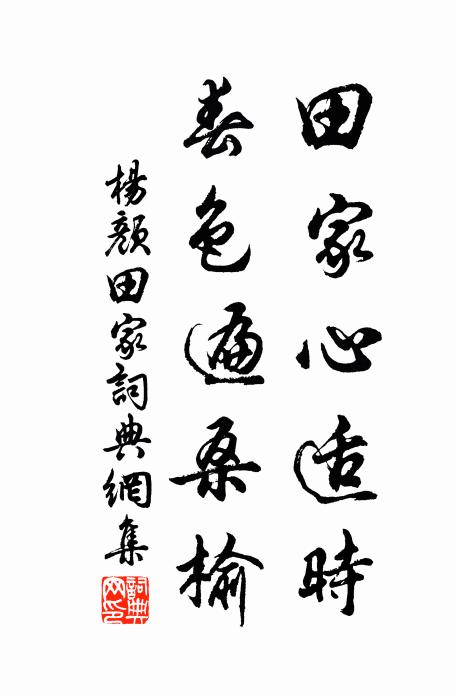 田家心适時
春色遍桑榆
楊顏田家詞典網集
詞典网印